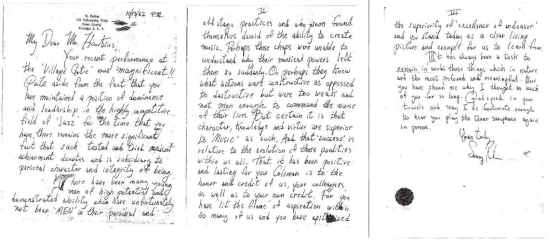 S. Rollins
10/13/62
My Dear Mr. Hawkins,
Your recent performance at
the 'Village Gate' was magnificent!!
Quite aside from the fact that you
have maintained a position of dominance
and leadership in the highly competitive
field of 'Jazz' for the time that you
have, there remains the more significant
fact that such tested and tried musical
achievement denotes and is subsidiary to
personal character and integrity of being.
There have been many young
men of high potential and
demonstrated ability who have unfortunately
not been 'MEN' in their personal and
II
offstage practices and who soon found
themselves devoid of the ability to create
music. Perhaps these chaps were unable to
understand why their musical powers left
them so suddenly. Or perhaps they knew
what actions were constructive as opposed
to destructive but were too weak and
not men enough to command the course
of their lives. But certain it is that
character, knowledge and virtue are superior
to 'Music' as such. And that 'success' is
relative to the evolution of those qualities
within us all. That it has been positive
and lasting for you Coleman is to the
honor and credit of us, your colleagues
as well as to your own credit. For you
have 'lit the flame' of aspiration within
so many of us and you have epitomized
III
the superiority of 'excellence of endeavor'
and you stand today as a clear living
picture and example for us to learn from
It has always been a task to
explain in words those things which in nature
are the most profound and meaningful. Now
you have shown me why I thought so much
of you for so long. Godspeed in your
travels and may I be fortunate enough
to hear you play the tenor saxophone again
in person.
Yours truly,
Sonny Rollins